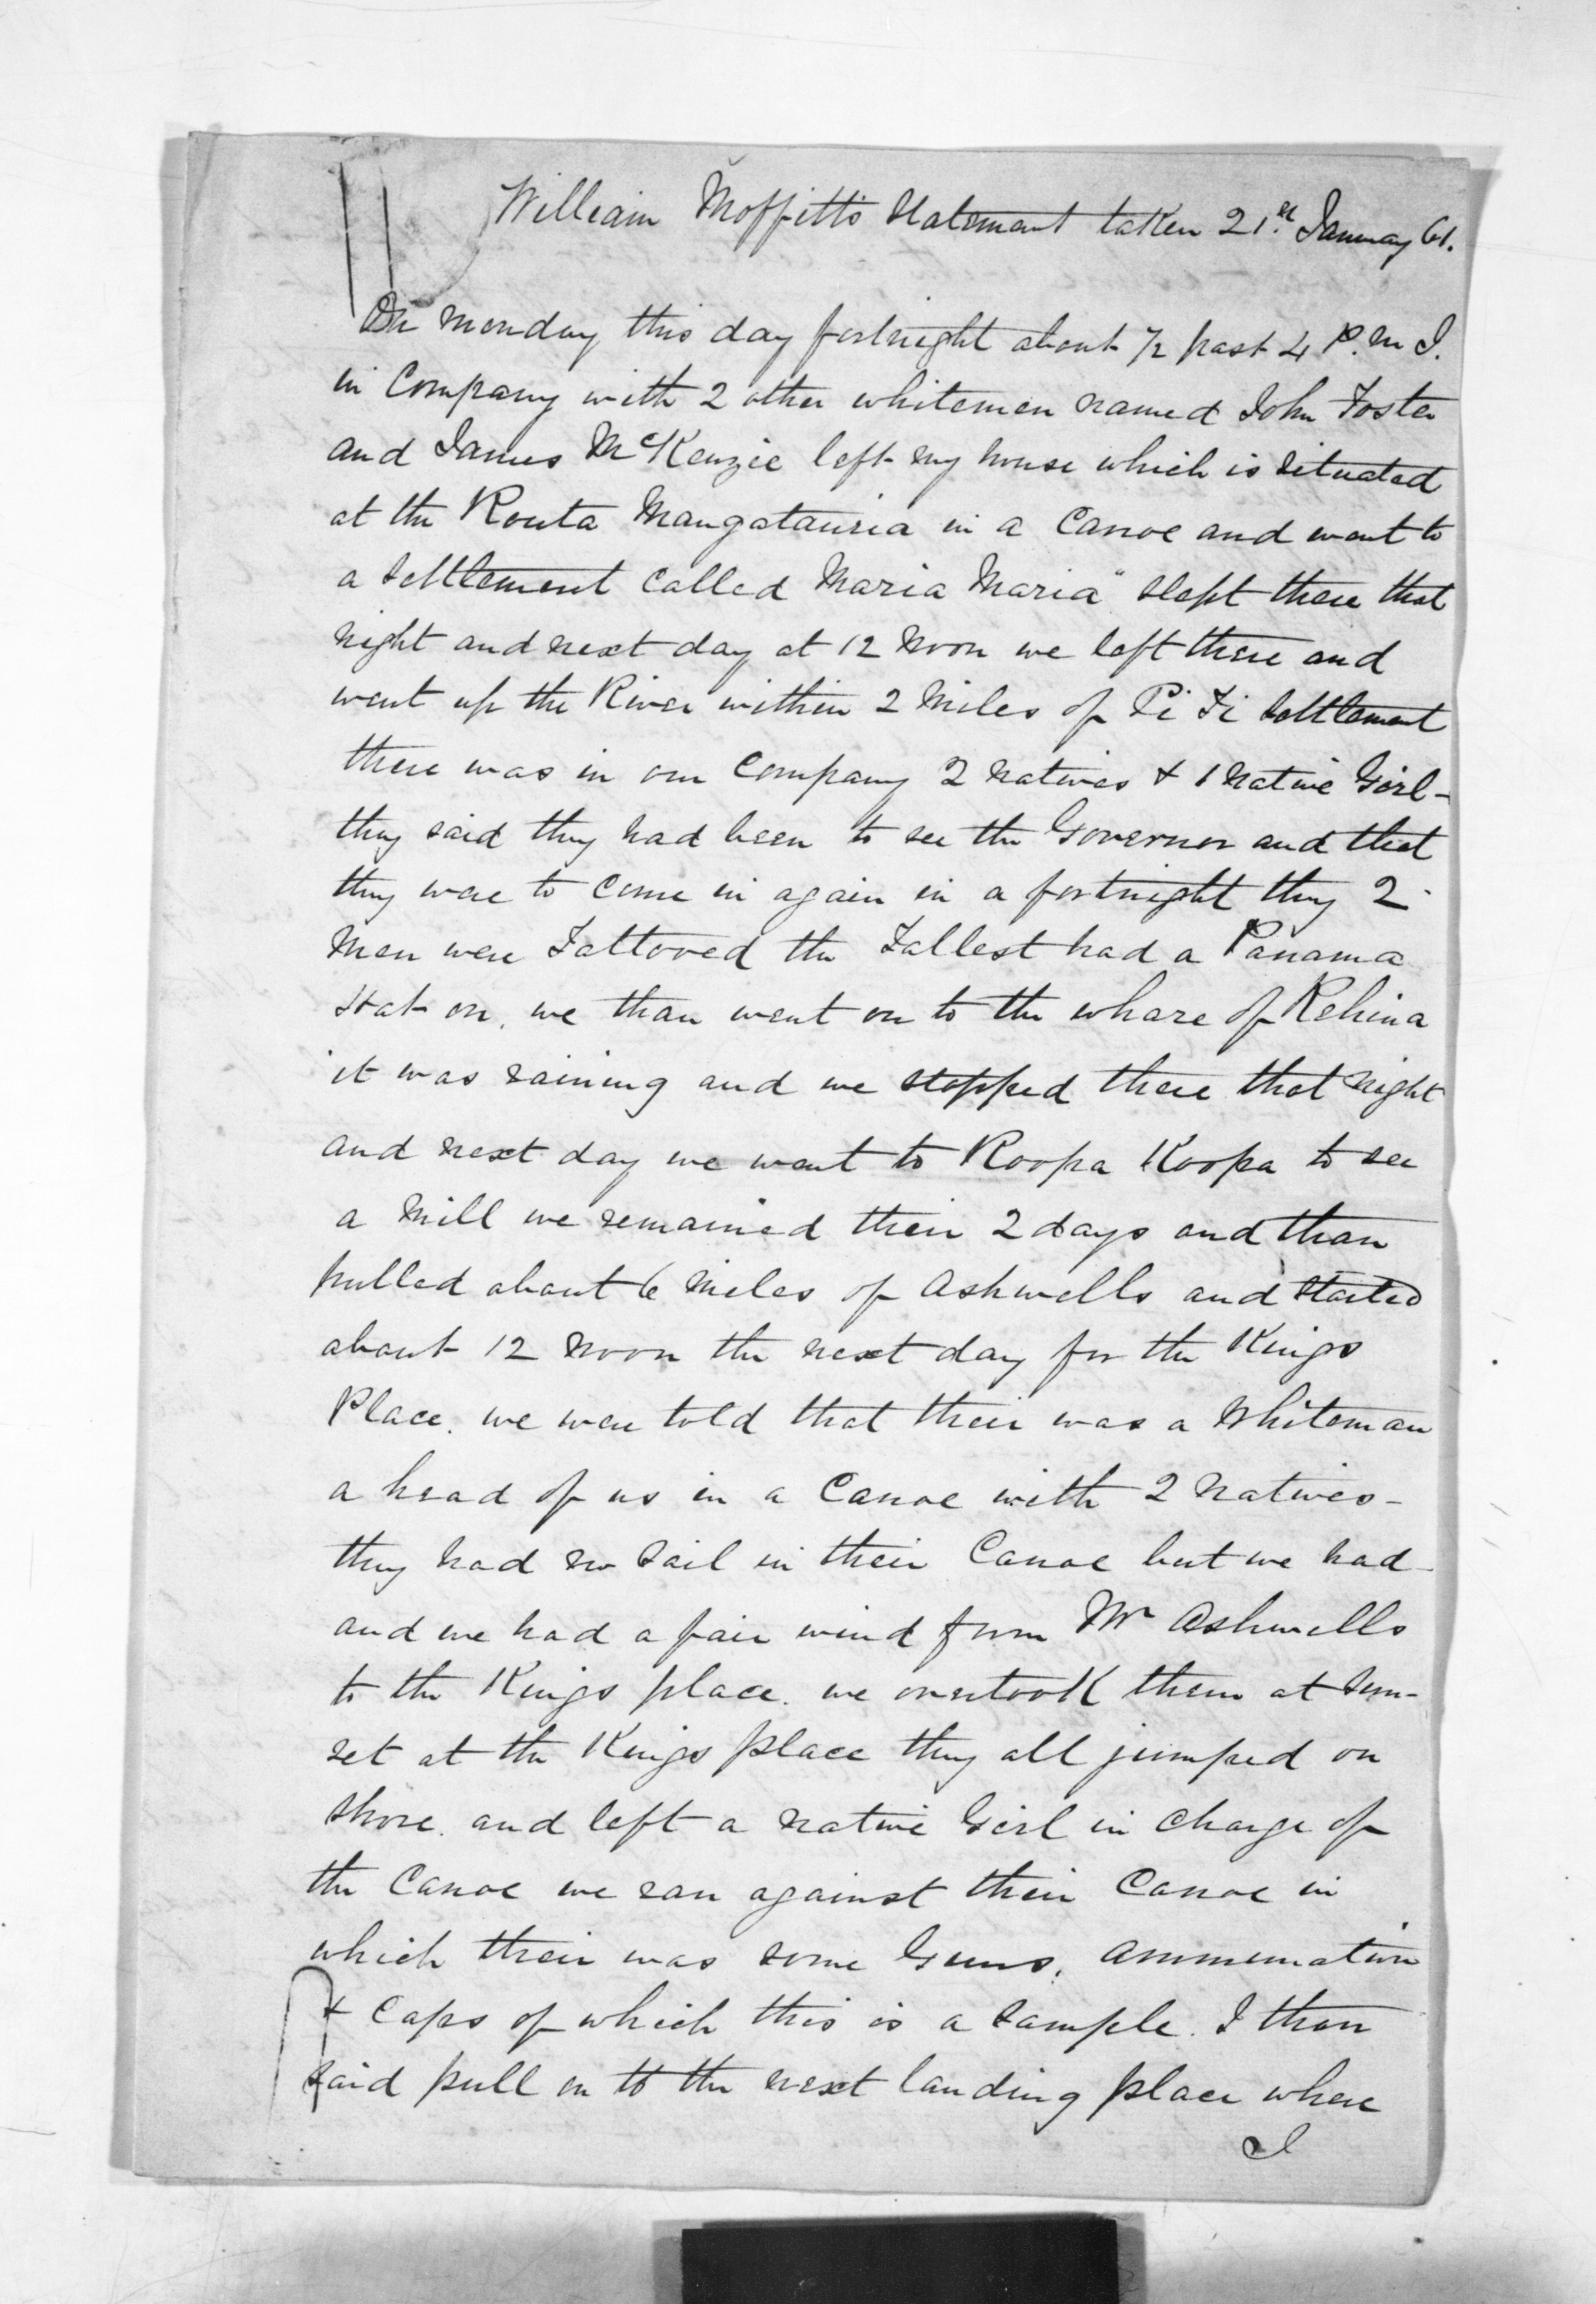 William Moffitt's Statement taken 21st January 61.
On Monday this day fortnight about 1/2 past 4 P.M I.
in Company with 2 other whitemen named John Foster
and James McKenzie left my house which is situated
at the Routa Mangatauria in a Canoe and went to
a Settlement called Maria Maria" slept there that
night and next day at 12 Noon we left there and
went up the River within 2 Miles of Pi Ti Settlement
there was in our Company 2 natives & 1 native Girl -
they said they had been to see the Governor and that
they were to come in again in a fortnight they 2
Men were Tattooed the Tallest had a Panama
Hat on, we than went on to the whare of Rehina
it was raining and we stopped there that night
and next day we went to Roopa Koopa to see
a Mill we remained their 2 days and than
pulled about 6 Miles of Ashwells and started
about 12 Noon the next day for the Kings
Place. we were told that their was a Whiteman
a head of us in a Canoe with 2 Natives -
they had no Sail in their Canoe but we had
and we had a fair wind from Mr Ashwells
to the Kings place. we overtook them at Sun-
set at the Kings place they all jumped on
Shore. and left a native Girl in charge of
the Canoe we ran against their Canoe in
which their was some Guns, Ammunation
& Caps of which this is a Sample. I than
Said pull on to the next landing place where
I